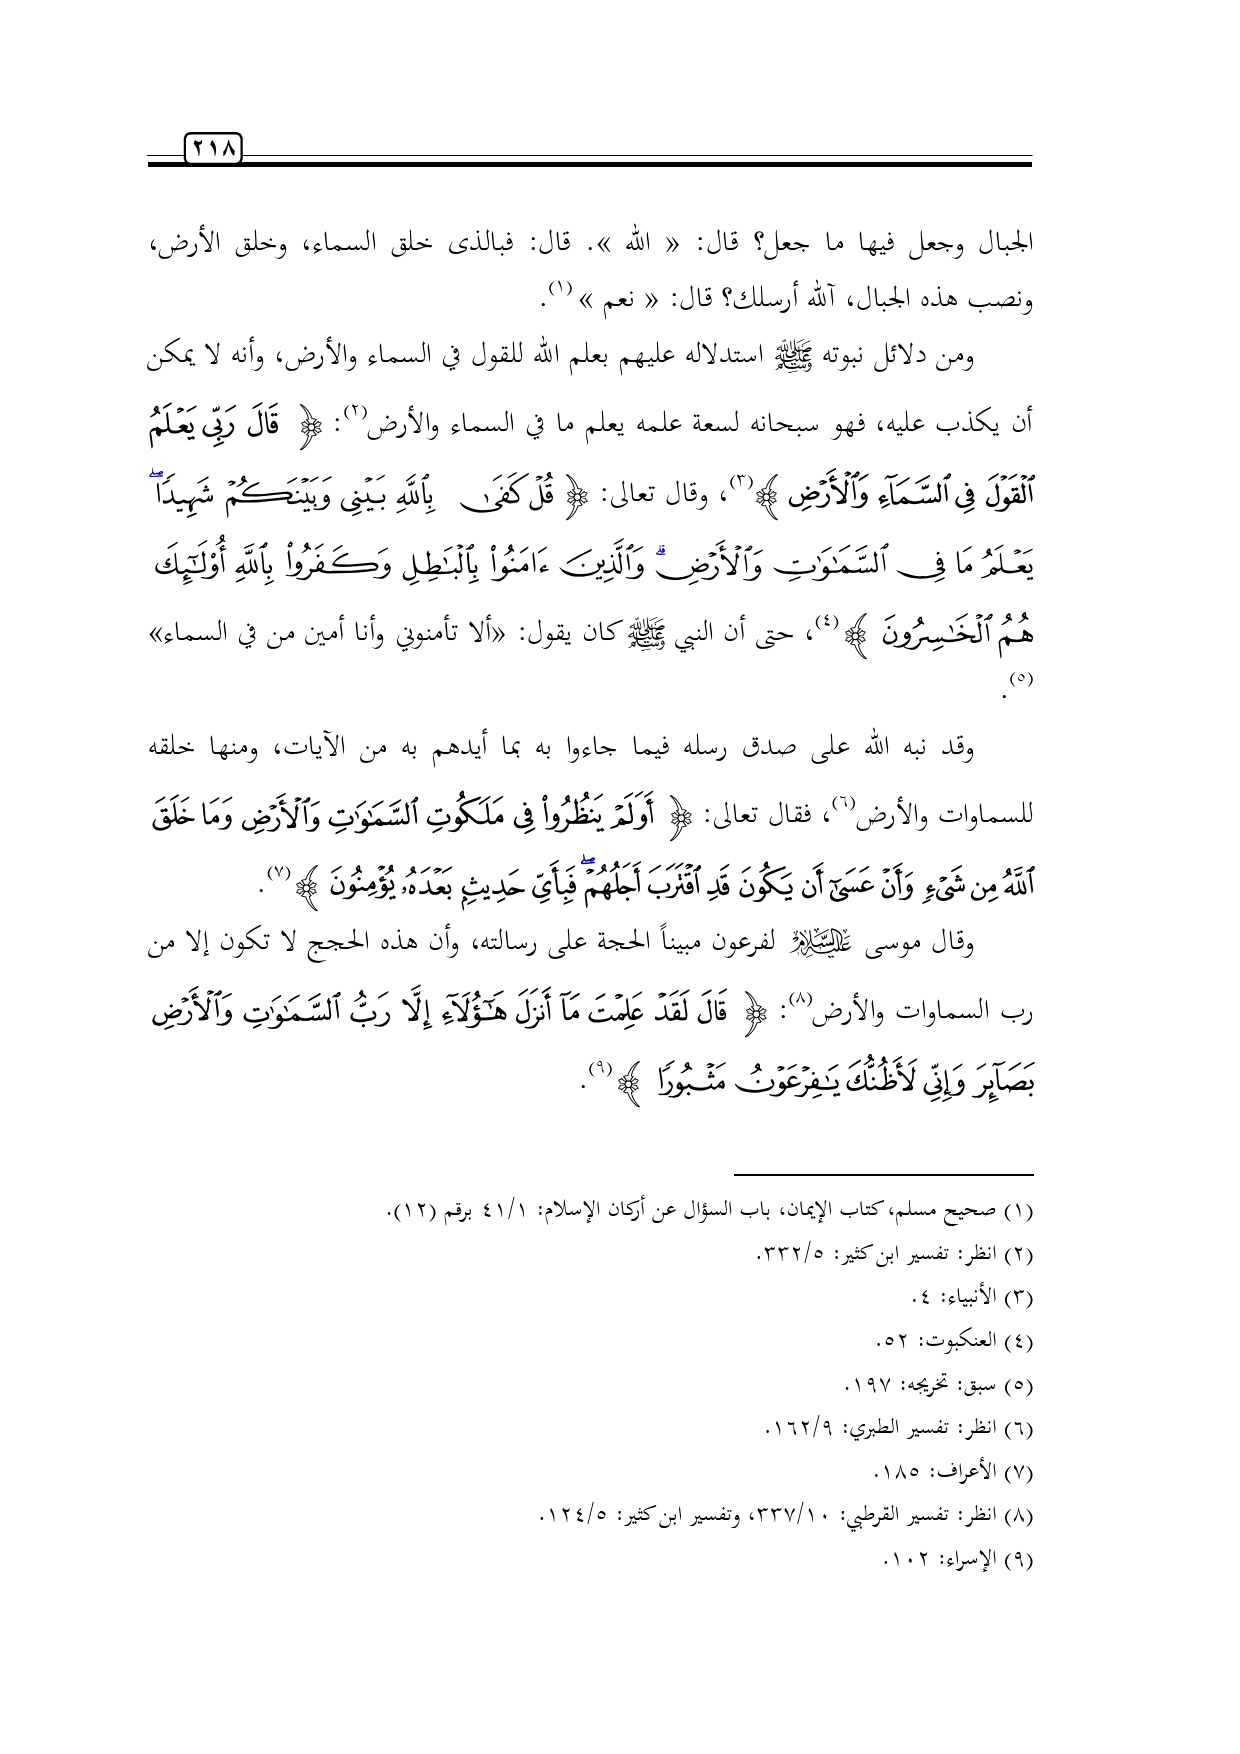 ٢١٨
الجبال وجعل فيها ما جعل؟ قال: « الله ». قال: فبالذى خلق السماء، وخلق الأرض،
ونصب هذه الجبال، آلله أرسلك؟ قال: « نعم »(١).
ومن دلائل نبوته ﷺ استدلاله عليهم بعلم الله للقول في السماء والأرض، وأنه لا يمكن
أن يكذب عليه، فهو سبحانه لسعة علمه يعلم ما في السماء والأرض(٢): ﴿ قَالَ رَبِّى يَعْلَمُ
ٱلْقَوْلَ فِى ٱلسَّمَآءِ وَٱلْأَرْضِ ﴾(٣)، وقال تعالى: ﴿ قُلْ كَفَىٰ بِٱللَّهِ بَيْنِى وَبَيْنَكُمْ شَهِيدًا ۖ
يَعْلَمُ مَا فِى ٱلسَّمَٰوَٰتِ وَٱلْأَرْضِ ۗ وَٱلَّذِينَ ءَامَنُوا۟ بِٱلْبَٰطِلِ وَكَفَرُوا۟ بِٱللَّهِ أُو۟لَٰٓئِكَ
هُمُ ٱلْخَٰسِرُونَ ﴾(٤)، حتى أن النبي ﷺ كان يقول: «ألا تأمنوني وأنا أمين من في السماء»
(٥).
وقد نبه الله على صدق رسله فيما جاءوا به بما أيدهم به من الآيات، ومنها خلقه
للسماوات والأرض(٦)، فقال تعالى: ﴿ أَوَلَمْ يَنظُرُوا۟ فِى مَلَكُوتِ ٱلسَّمَٰوَٰتِ وَٱلْأَرْضِ وَمَا خَلَقَ
ٱللَّهُ مِن شَىْءٍ وَأَنْ عَسَىٰٓ أَن يَكُونَ قَدِ ٱقْتَرَبَ أَجَلُهُمْ ۖ فَبِأَىِّ حَدِيثٍۭ بَعْدَهُۥ يُؤْمِنُونَ ﴾(٧).
وقال موسى عليه السلام لفرعون مبيناً الحجة على رسالته، وأن هذه الحجج لا تكون إلا من
رب السماوات والأرض(٨): ﴿ قَالَ لَقَدْ عَلِمْتَ مَآ أَنزَلَ هَٰٓؤُلَآءِ إِلَّا رَبُّ ٱلسَّمَٰوَٰتِ وَٱلْأَرْضِ
بَصَآئِرَ وَإِنِّى لَأَظُنُّكَ يَٰفِرْعَوْنُ مَثْبُورًا ﴾(٩).
(١) صحيح مسلم، كتاب الإيمان، باب السؤال عن أركان الإسلام: ٤١/١ برقم (١٢).
(٢) انظر: تفسير ابن كثير: ٣٣٢/٥.
(٣) الأنبياء: ٤.
(٤) العنكبوت: ٥٢.
(٥) سبق: تخريجه: ١٩٧.
(٦) انظر: تفسير الطبري: ١٦٢/٩.
(٧) الأعراف: ١٨٥.
(٨) انظر: تفسير القرطبي: ٣٣٧/١٠، وتفسير ابن كثير: ١٢٤/٥.
(٩) الإسراء: ١٠٢.